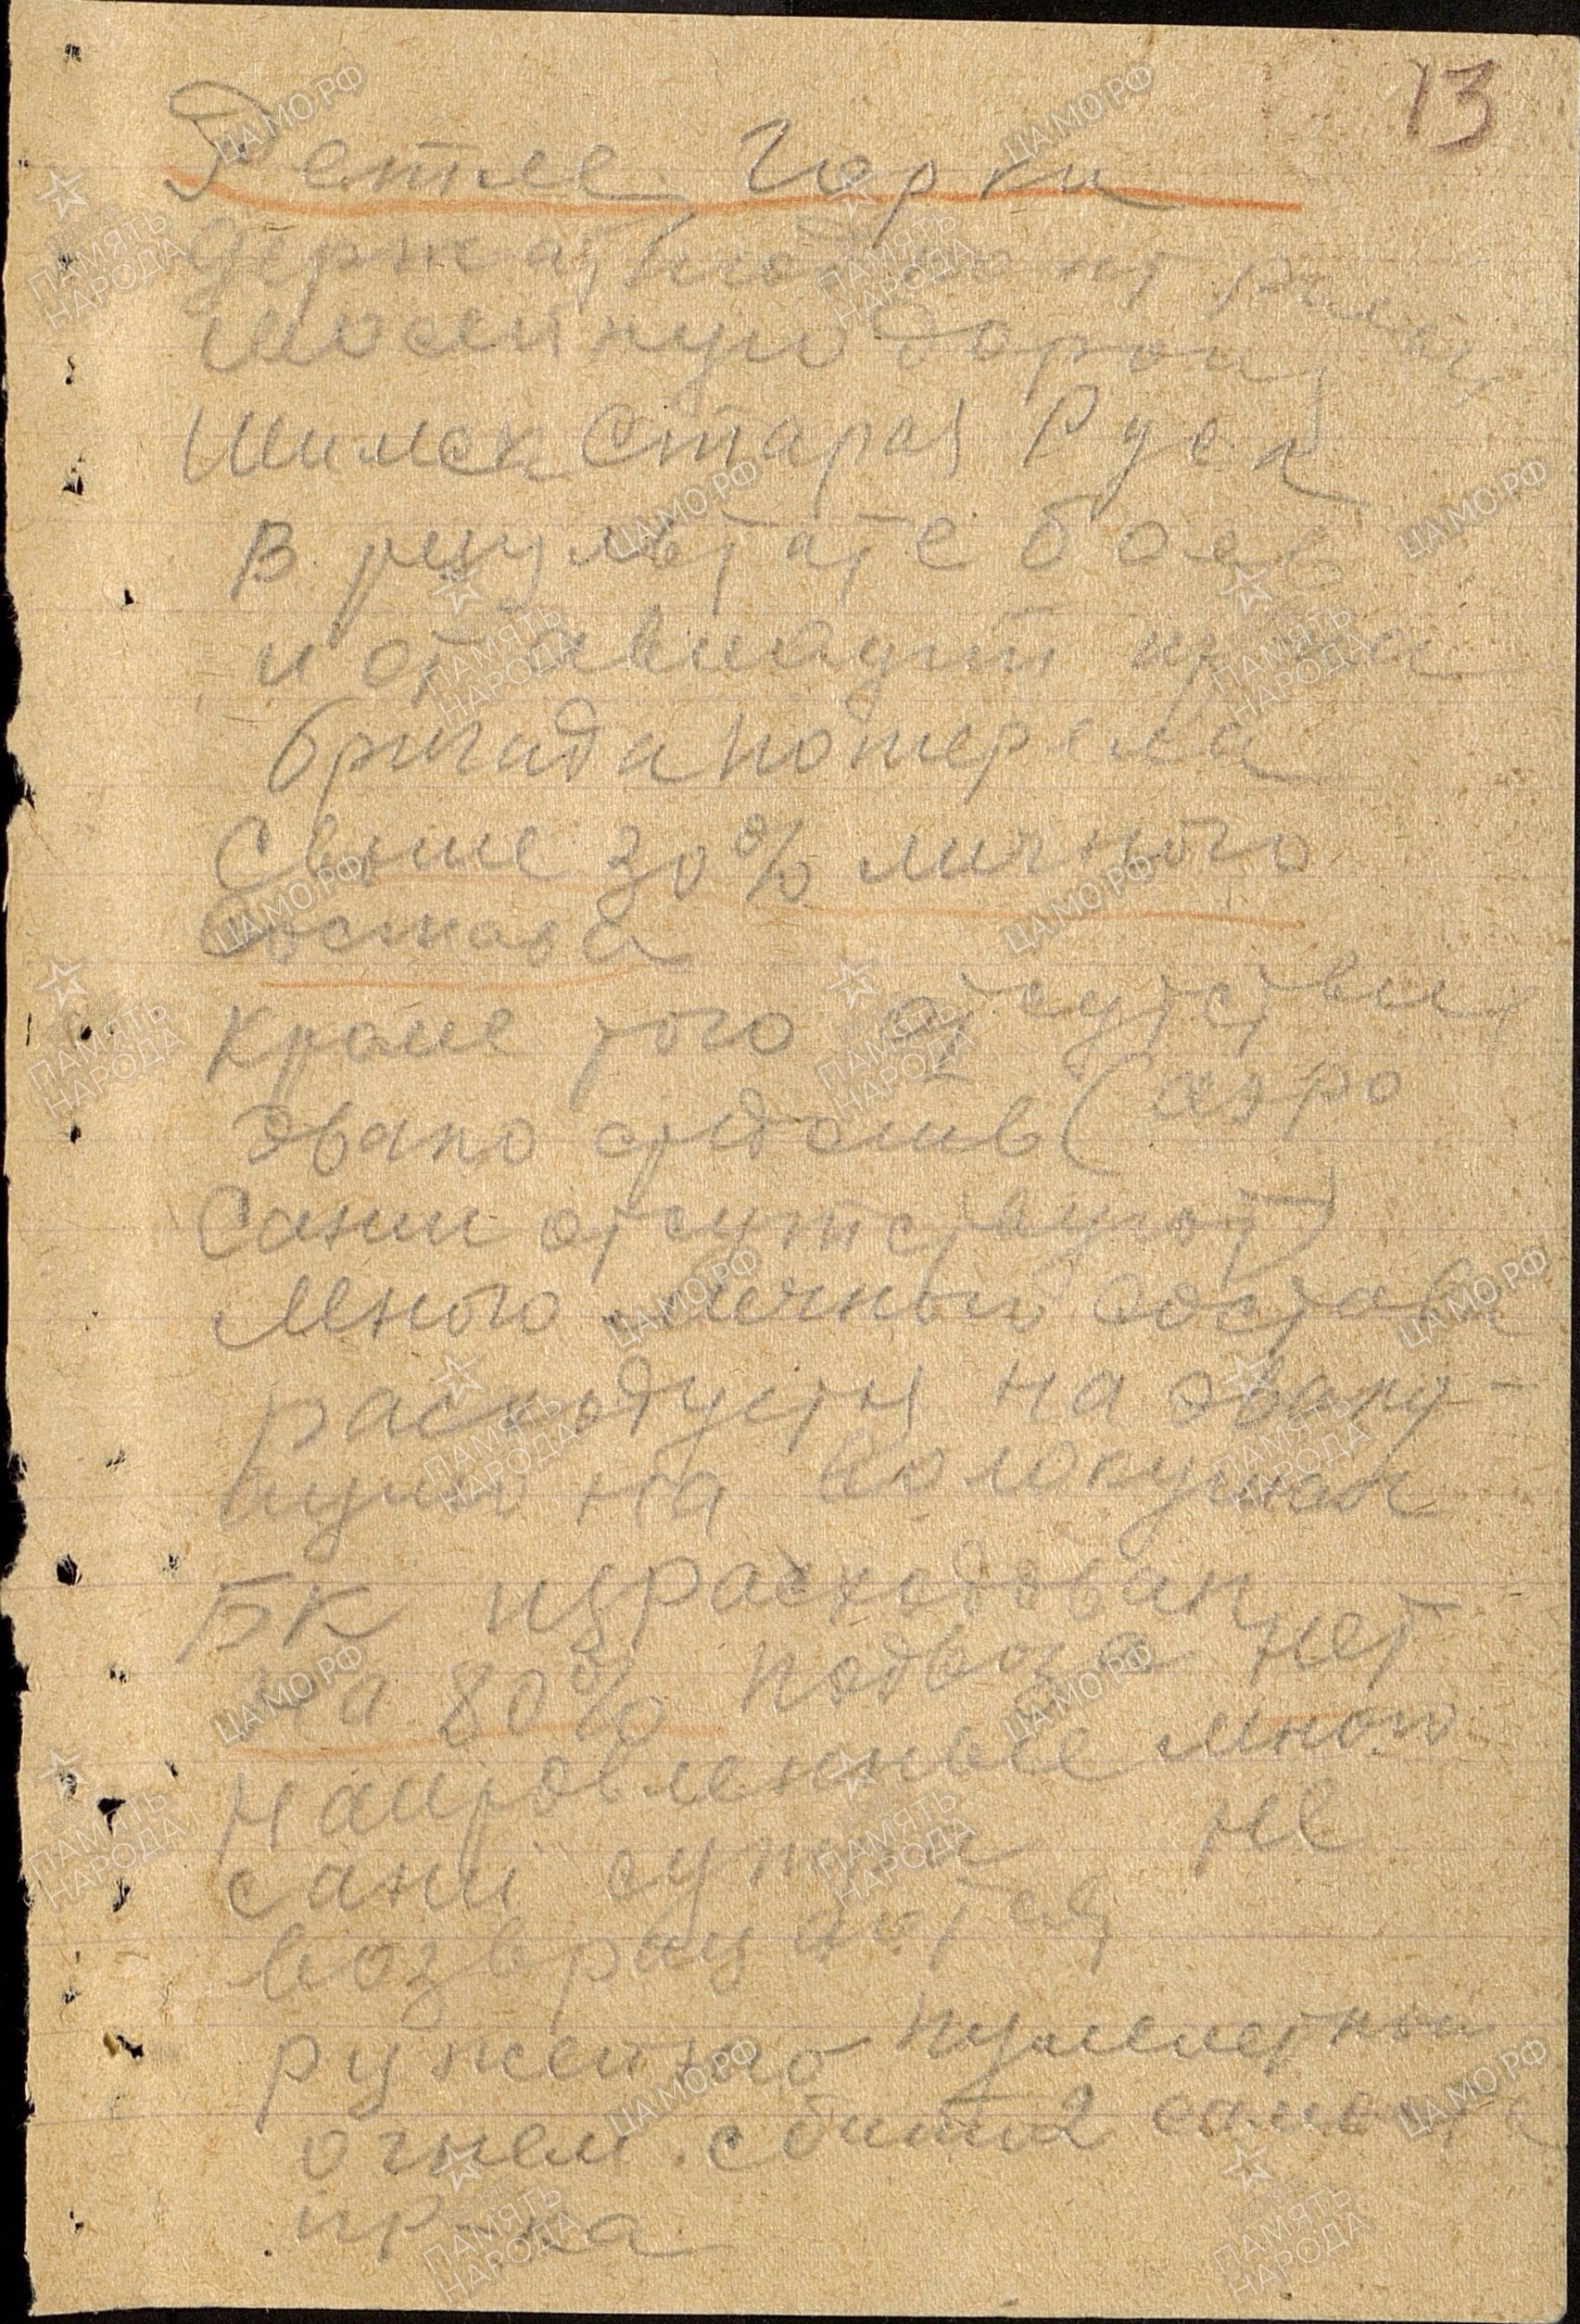 13
Ретле, Горки
держат под контролем
шоссейную дорогу
Шимск Старая Русса
В результате боев
и от авиации пр-ка
бригада потеряла
Свыше 30% личного
Состава
Кроме того отсутствие
эвако средств (аэро
Сани отсутствуют)
Много личного состава
расходуется на эваку-
ацию на волокушах
БК израсходован
на 80% подвоза нет
Направленные много
сани сутки не
возвращаются
ружейно пулеметным
огнем сбито 2 самолета
пр-ка